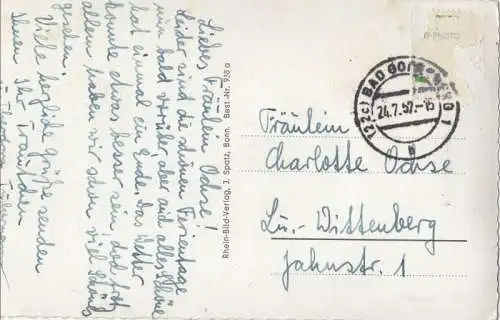 Liebes Fräulein Ochse!
Leider sind die schönen Ferientage
nun bald vorüber aber auch alles Schöne
hat einmal ein Ende. Das Wetter
könnte etwas besser sein, doch trotz
allem haben wir schon viel Schönes
gesehen.
Viele herzliche Grüße senden
Ihnen Ihr Trautchen
Rhein-Bild-Verlag, J. Spatz, Bonn. Best-Nr. 935 a
(22c) BAD GO
24.7.52.-15
b
Fräulein
Charlotte Ochse
Lu.-Wittenberg
Jahnstr. 1